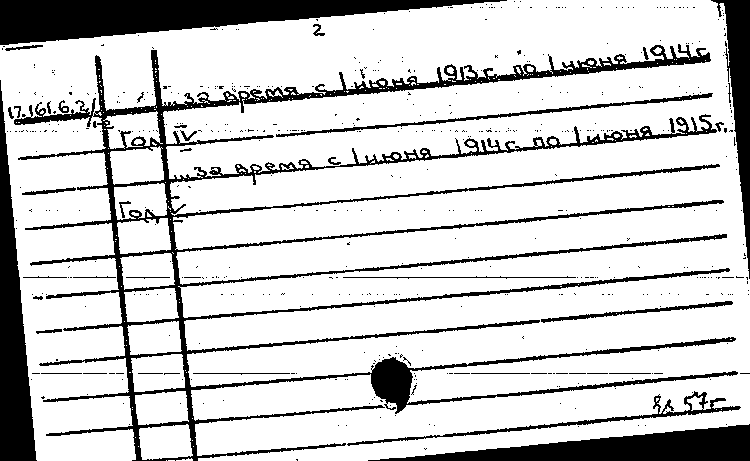 2
17.161.6.2/1-2 ...за время с 1 июня 1913 г. по 1 июня 1914 г.
Год IV
...за время с 1 июня 1914 г. по 1 июня 1915 г.
Год V
57 г